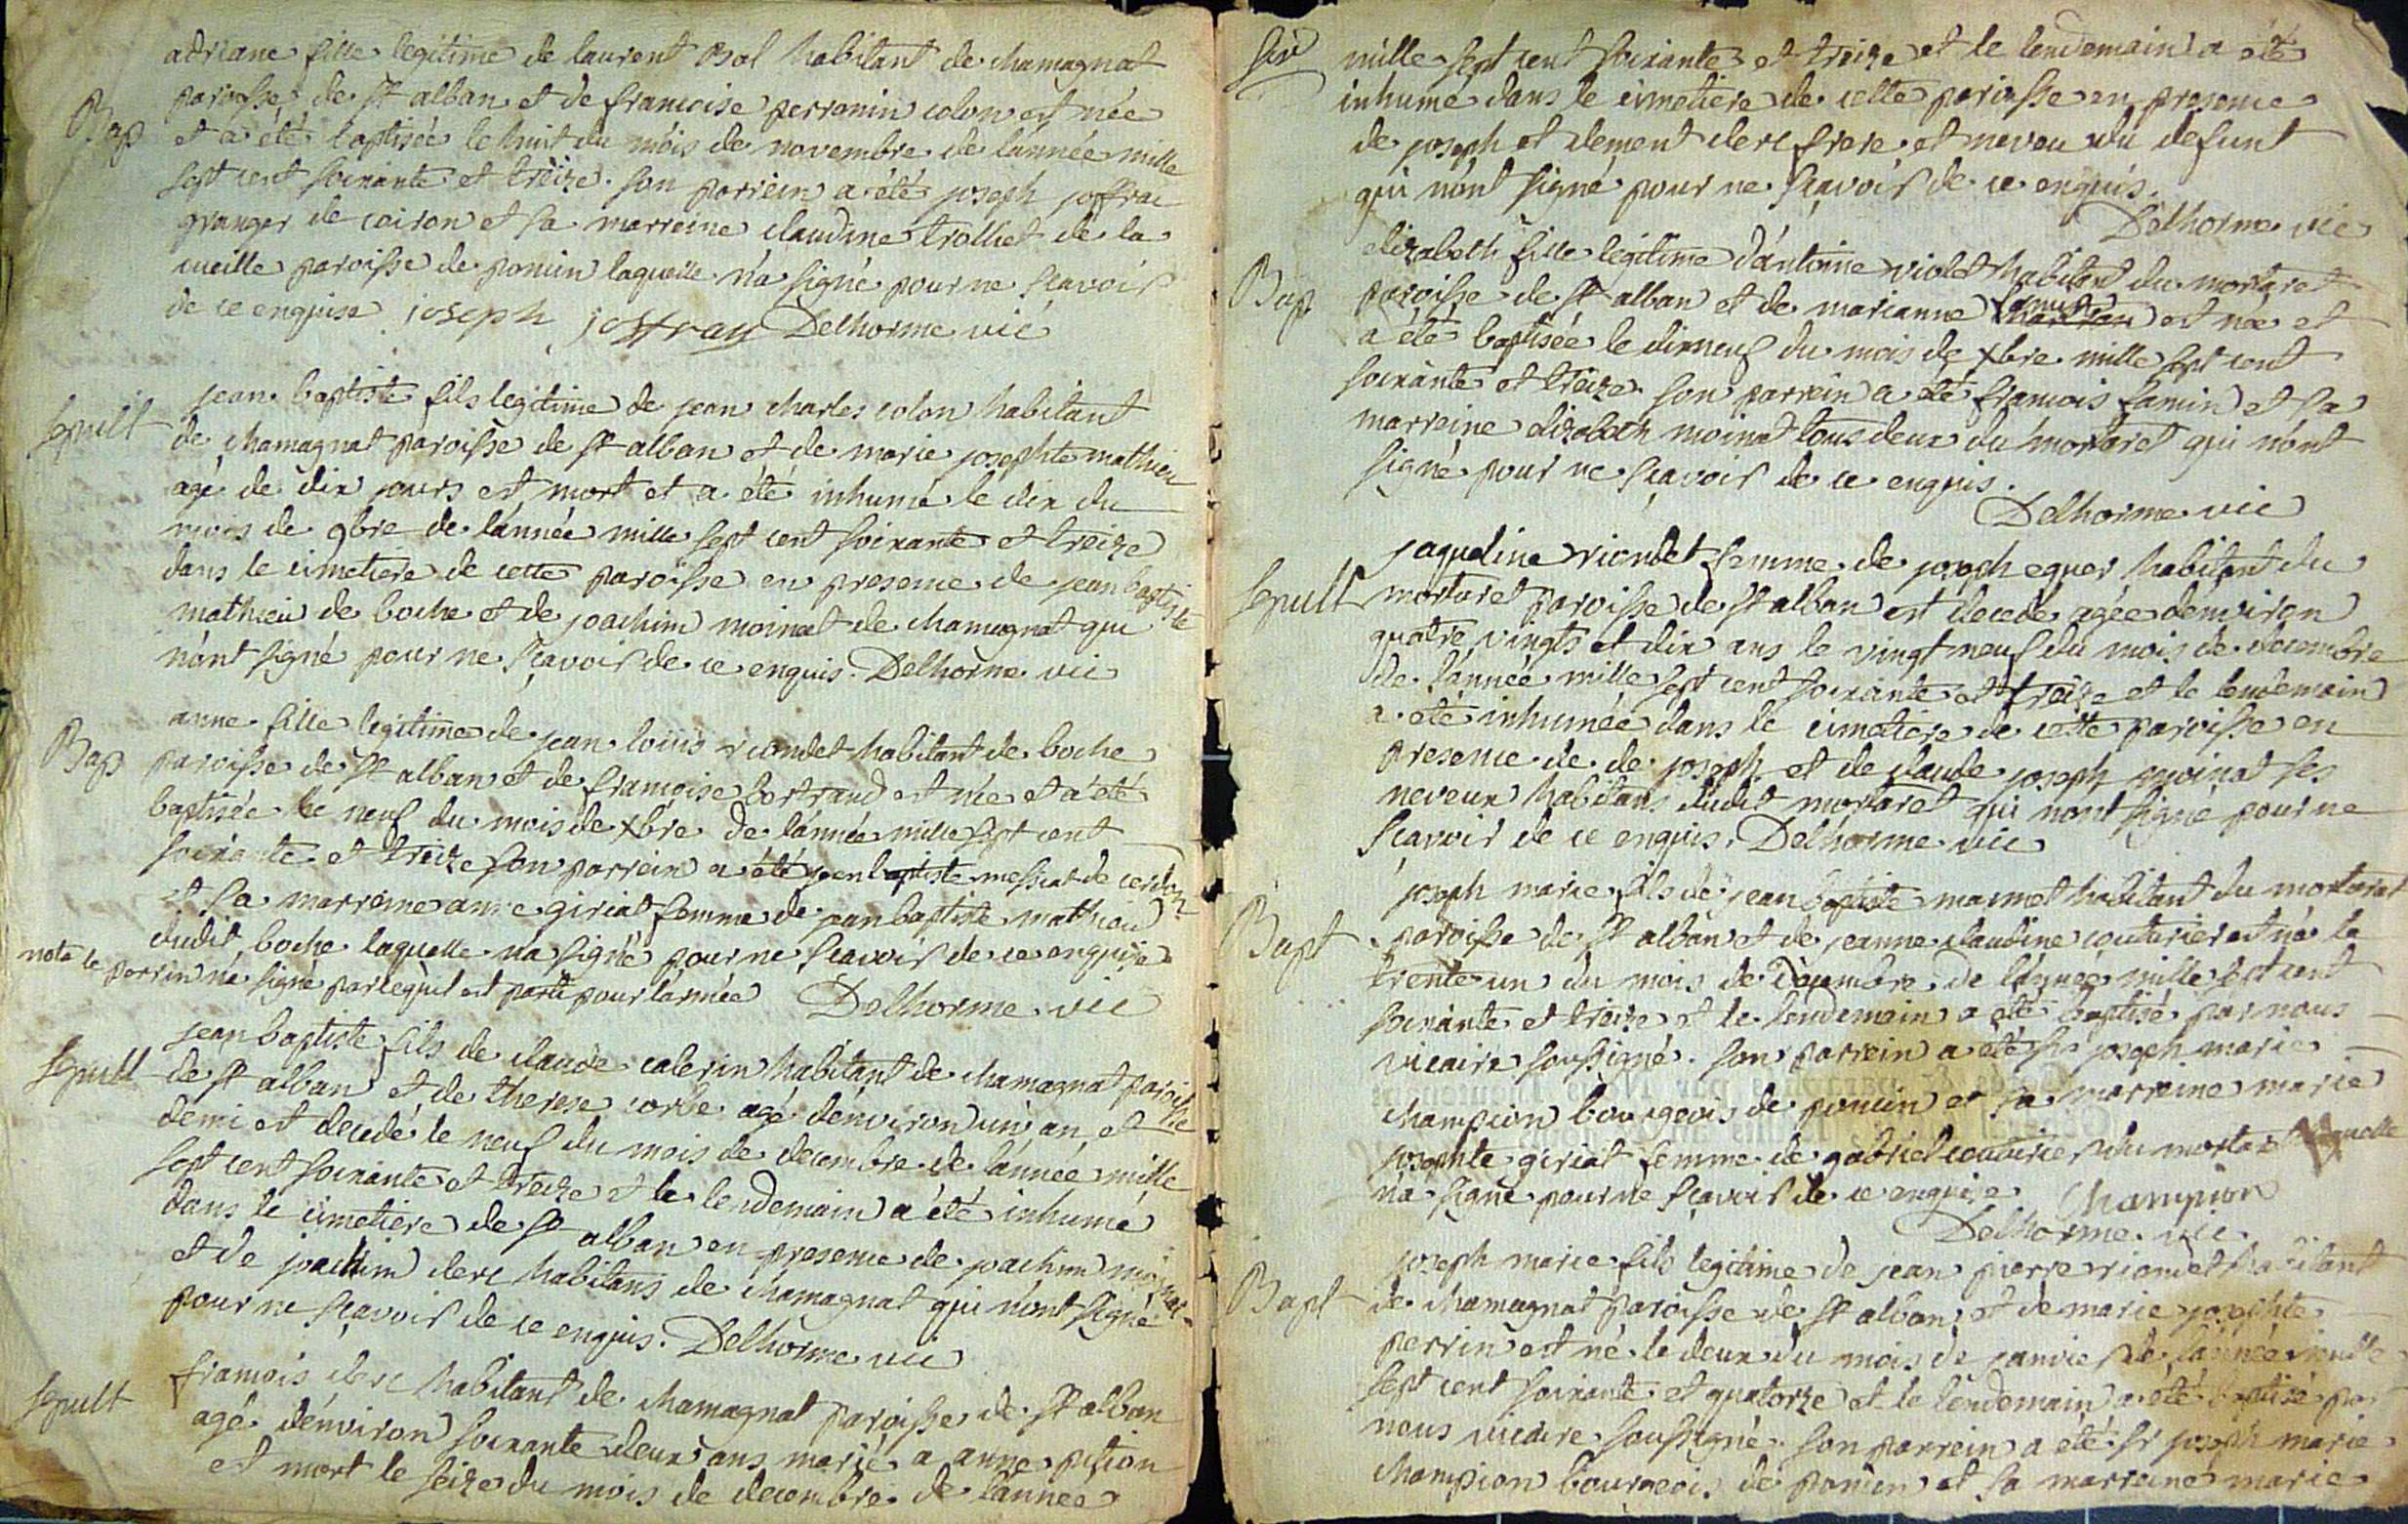 adriane fille legitime de laurent Bal habitant de chamagnat
Bap paroisse de st alban et de francoise perronin colon est née
et a été baptisée le huit du mois de novembre de l'année mille
sept cent soixante et treize. son parrein a été joseph joffrai
granger de coiron et sa marreine claudine trolliet de la
cueille paroisse de poncin laquelle n'a signé pour ne sçavoir
de ce enquise. joseph joffray Delhorme vic
jean baptiste fils legitime de jean charles colon habitant
sepult de chamagnat paroisse de st alban et de marie josephte mathieu
agé de dix jours est mort et a été inhumé le dix du
mois de 9bre de l'année mille sept cent soixante et treize
dans le cimetiere de cette paroisse en presence de jean baptiste
mathieu de boche et de joachim moinat de chamagnat qui
n'ont signé pour ne sçavoir de ce enquis. Delhorme vic
anne fille legitime de jean louis riondet habitant de boche
Bap paroisse de st alban et de francoise bertrand est née et a été
baptisée le neuf du mois de xbre de l'année mille sept cent
soixante et treize son parrein a été jean baptiste messiat de cerdon
et sa marreine anne giriat femme de jean baptiste mathieu
dudit boche laquelle na signé pour ne sçavoir de ce enquise
nota le parrin n'a signé parcequil est parti pour l'armée Delhorme vic
jean baptiste fils de claude calerin habitant de chamagnat paroisse
sepult de st alban et de therese corbe agé denviron un an et
demi est decedé le neuf du mois de decembre de l'année mille
sept cent soixante et treize et le lendemain a été inhumé
dans le cimetiere de st alban en presence de joachim moinat
et de joachim clerc habitans de chamagnat qui n'ont signé
pour ne sçavoir de ce enquis. Delhorme vic
francois clerc habitant de chamagnat paroisse de st alban
sepult agé denviron soixante deux ans marié a anne pition
et mort le seize du mois de decembre de l'année
mille sept cent soixante et treize et le lendemain a été
inhumé dans le cimetiere de cette paroisse en presence
de joseph et clement clerc frere et neveu du defunt
qui n'ont signé pour ne sçavoir de ce enquis.
Delhorme vic
elizabeth fille legitime d'antoine violet habitant du mortaret
Bap paroisse de st alban et de marianne famin est née et
a été baptisée le dixneuf du mois de xbre mille sept cent
soixante et treize. son parrein a été francois famin et sa
marreine elizabeth moinat tous deux du mortaret qui n'ont
signé pour ne sçavoir de ce enquis.
Delhorme vic
jaqueline riondet femme de joseph eguer habitant du
sepult mortaret paroisse de st alban est decedé agée denviron
quatre vingts et dix ans le vingt neuf du mois de decembre
de l'année mille sept cent soixante et treize et le lendemain
a été inhumée dans le cimetiere de cette paroisse en
presence de de joseph et de claude joseph moinat ses
neveux habitans dudit mortaret qui nont signé pour ne
sçavoir de ce enquis. Delhorme vic
joseph marie fils de jean baptiste marmet habitant du mortaret
Bapt paroisse de st alban et de jeanne claudine couturier est né le
trente un du mois de decembre de l'année mille sept cent
soixante et treize et le lendemain a été baptisé par nous
vicaire soussigné. son parrein a été sr joseph marie
champion bourgeois de poncin et sa marreine marie
josephte giriat femme de gabriel couturier du mortaret laquelle
n'a signé pour ne sçavoir de ce enquise Champion
Delhorme vic
joseph marie fils legitime de jean pierre riondet habitant
Bapt de chamagnat paroisse de st alban et de marie josephte
perrin est né le deux du mois de janvier de l'année mille
sept cent soixante et quatorze et le lendemain a été baptisé par
nous vicaire soussigné. son parrein a été sr joseph marie
champion bourgeois de poncin et sa marreine marie